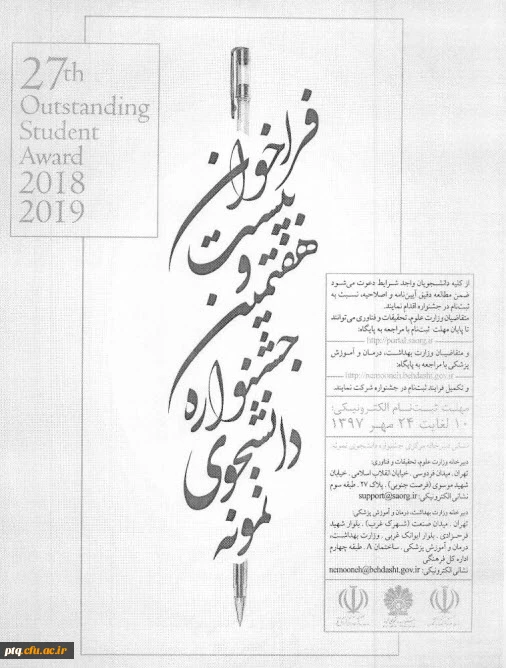 27th
Outstanding
Student
Award
2018
2019
فراخوان
بیست
و
هفتمین
جشنواره
دانشجوی
نمونه
از کلیه دانشجویان واجد شرایط دعوت می‌شود
ضمن مطالعه دقیق آیین‌نامه و اصلاحیه، نسبت به
ثبت‌نام در جشنواره اقدام نمایند.
متقاضیان وزارت علوم، تحقیقات و فناوری می‌توانند
تا پایان مهلت ثبت‌نام با مراجعه به پایگاه:
http://portal.saorg.ir
و متقاضیان وزارت بهداشت، درمان و آموزش
پزشکی با مراجعه به پایگاه:
http://nemooneh.behdasht.gov.ir
و تکمیل فرایند ثبت‌نام در جشنواره شرکت نمایند.
مهلت ثبت‌نام الکترونیکی:
۱۰ لغایت ۲۴ مهر ۱۳۹۷
نشانی دبیرخانه مرکزی جشنواره دانشجوی نمونه
دبیرخانه وزارت علوم، تحقیقات و فناوری:
تهران . میدان فردوسی . خیابان انقلاب اسلامی . خیابان
شهید موسوی (فرصت جنوبی) . پلاک ۲۷ . طبقه سوم
نشانی الکترونیکی: support@saorg.ir
دبیرخانه وزارت بهداشت، درمان و آموزش پزشکی:
تهران . میدان صنعت (شهرک غرب) . بلوار شهید
فرحزادی . بلوار ایوانک غربی . وزارت بهداشت،
درمان و آموزش پزشکی . ساختمان A . طبقه چهارم
اداره کل فرهنگی
نشانی الکترونیکی: nemooneh@behdasht.gov.ir
ptq.cfu.ac.ir